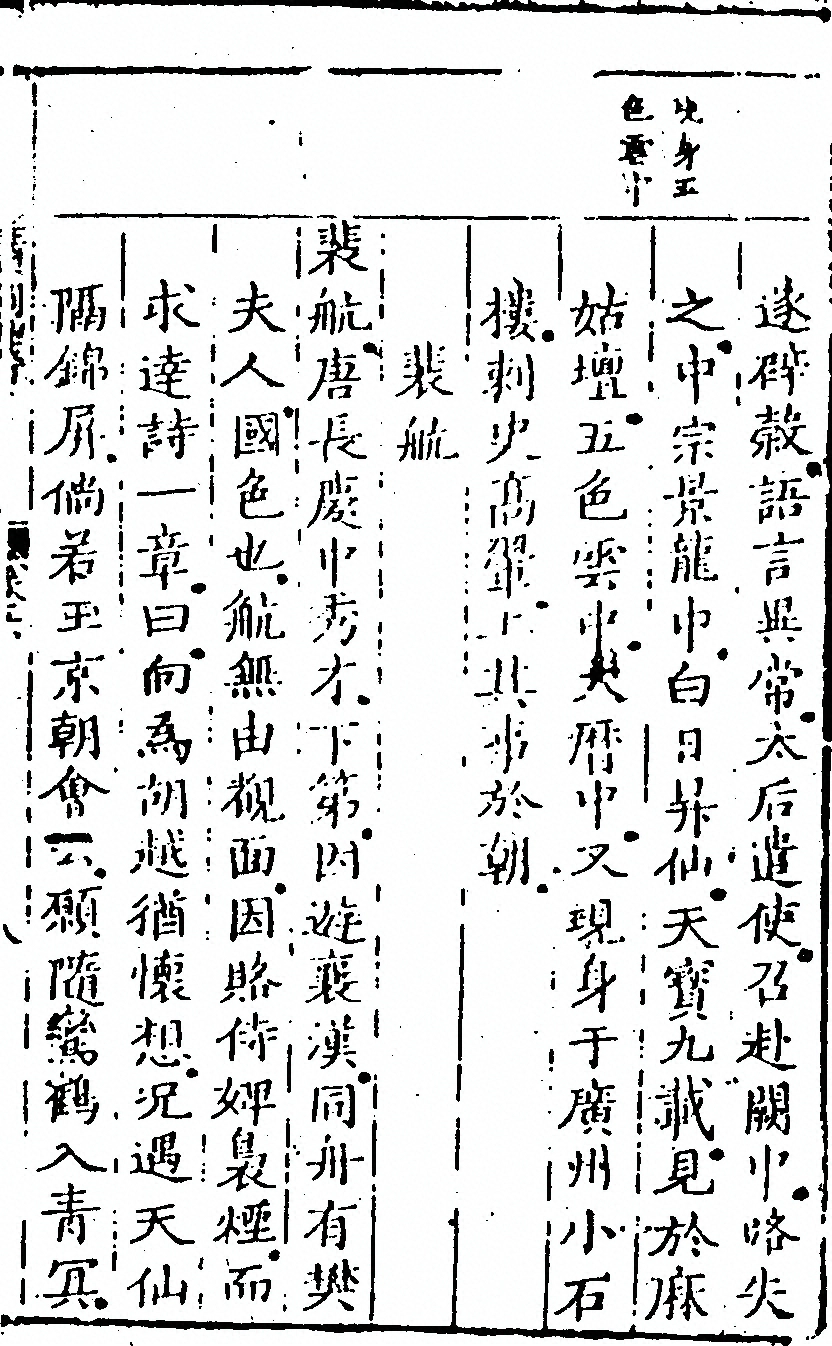 現身五
色雲中
遂辟穀語言異常太后遣使召赴闕中路失
之中宗景龍中白日昇仙天寶九載見於麻
姑壇五色雲中大曆中又現身于廣州小石
樓刺史高翬上其事於朝
裴航
裴航唐長慶中秀才下第因遊襄漢同舟有樊
夫人國色也航無由覩面因賂侍婢裊煙而
求達詩一章曰向為胡越猶懷想况遇天仙
隔錦屏倘若玉京朝會去願隨鸞鶴入青冥